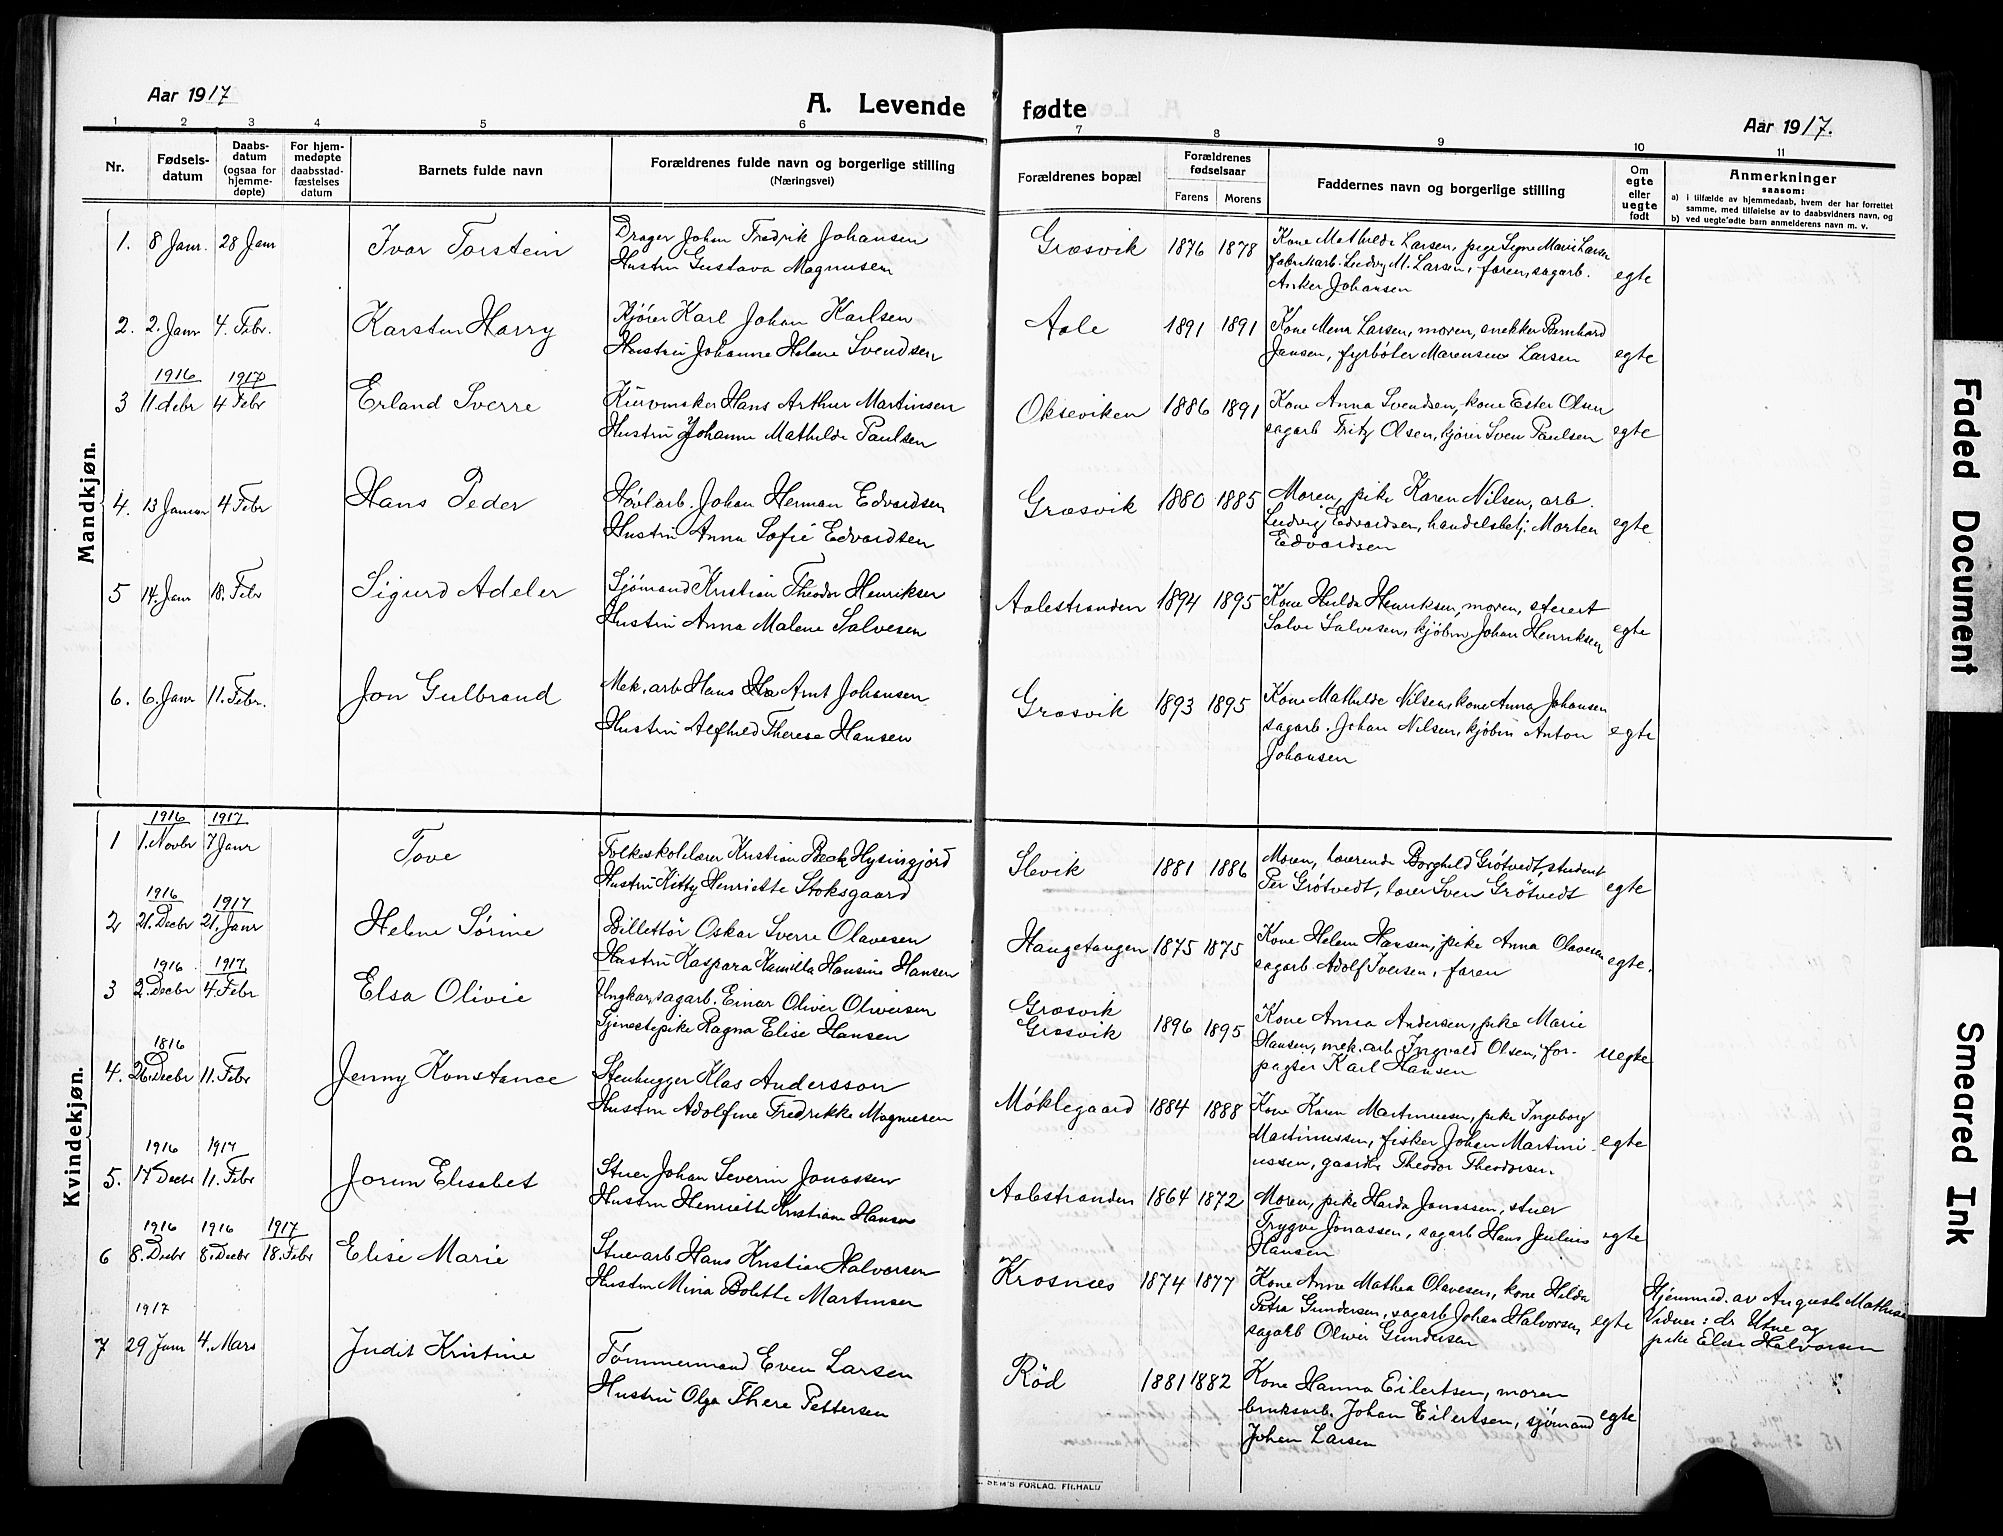 Aar 1917
A. Levende fødte
Aar 1917.
1 2 3 4 5 6 7 8 9 10 11
Nr.
Fødsels-
datum
Daabs-
datum
(ogsaa for
hjemme-
døpte)
For hjem-
medøpte
daabsstad-
fæstelses
datum
Barnets fulde navn
Forældrenes fulde navn og borgerlige stilling
(Næringsvei)
Forældrenes bopæl
Forældrenes
fødselsaar
Farens Morens
Faddernes navn og borgerlige stilling
Om
egte
eller
uegte
født
Anmerkninger
saasom:
a) i tilfælde av hjemmedaab, hvem der har forrettet
samme, med tilføielse av to daabsvidners navn, og
b) ved uegte fødte barn anmelderens navn m. v.
Mandkjøn.
1. 8 Janr. 28 Janr Ivar Torstein
Drager Johan Fredrik Johansen
Hustru Gustava Magnusen
Græsvik 1876 1878
Kone Mathilde Larsen, pige Signe Marie Larsen
fabrikarb. Ludvig M. Larsen, faren, sagarb.
Anker Johansen
egte
2. 2. Janr 4. Febr. Karsten Harry
Kjører Karl Johan Karlsen
Hustru Johanne Helene Svendsen
Aale 1891 1891
Kone Mena Larsen, moren, snekker Bernhard
Jansen, fyrbøter Marensius Larsen
egte
1916 1917
3 11 debr 4 Febr Erland Sverre
Kurvmaker Hans Arthur Martinsen
Hustru Johanne Mathilde Paulsen
Okseviken 1886 1891
Kone Anna Svendsen, kone Ester Olsen
sagarb Fritz Olsen, kjører Sven Paulsen
egte
4. 13 Januar 4 Febr Hans Peder
Høvlarb. Johan Herman Edvardsen
Hustru Anna Sofie Edvardsen
Græsvik 1880 1885
Moren, pike Karen Nilsen, arb.
Ludvig Edvardsen, handelsbetj. Morten
Edvardsen
egte
5 14. Janr 18. Febr Sigurd Adeler
Sjømand Kristian Theodor Henriksen
Hustru Anna Malene Salvesen
Aalestranden 1894 1895
Kone Hulda Henriksen, moren, stuert
Salve Salvesen, kjøbm Johan Henriksen
egte
6. 6. Janr 11. Febr. Jon Gulbrand
Mek. arb Hans Arnt Johansen
Hustru Alfhild Therese Hansen
Græsvik 1893 1895
Kone Mathilde Nilsen, kone Anna Johansen
sagarb. Johan Nilsen, kjøbm Anton
Johansen
egte
Kvindekjøn.
1916 1917
1 1. Novbr 7 Janr Tove
Folkeskolelærer Kristian Bech Hysingjord
Hustru Kitty Henriette Stoksgaard
Slevik 1881 1886
Moren, lærerinde Borghild Grøtvedt, student
Per Grøtvedt, lærer Sven Grøtvedt
egte
1916 1917
2 21. Decbr 21. Janr Helene Sørine
Billettør Oskar Sverre Olavesen
Hustru Kaspara Kamilla Hansine Hansen
Haugetangen 1875 1875
Kone Helene Hansen, pike Anna Olavesen
sagarb. Adolf Iversen, faren
egte.
1916 1917
3 2. Decbr 4. Febr Elsa Olivie
Ungkar, sagarb. Einar Oliver Oliversen
Tjenestepike Ragna Elise Hansen
Græsvik
Græsvik 1896 1895
Kone Anna Andersen, pike Marie
Hansen, mek. arb Ingvald Olsen, for-
pagter Karl Hansen
uegte
1816
4. 26. Decbr 11. Febr Jenny Konstance
Stenhugger Klas Andersson
Hustru Adolfine Fredrikke Magnusen
Møklegaard 1884 1888
Kone Karen Martinussen, pike Ingeborg
Martinussen, fisker Johan Martini-
ussen, gaardbr Theodor Theodorsen.
egte
1916 1917
5. 17 Decbr 11. Febr Jorun Elisabet
Stuer Johan Severin Jonassen
Hustru Henriette Kristiane Hansen
Aalestranden 1864 1872
Moren, pike Harda Jonassen, stuer
Trygve Jonassen, sagarb Hans Julius
Hansen
egte
1916 1916 1917
6 8. Decbr 8. Decbr 18. Febr Elise Marie
Stuerarb Hans Kristian Halvorsen
Hustru Mina Bolette Martinsen
Krosnæs 1874 1877
Kone Anne Mathea Olavesen, kone Hilda
Petra Gundersen, sagarb Johan Halvorsen,
sagarb Oliver Gundersen
egte
Hjemmed. av Augusta Mathisen
Vidner: dr Utne og
pike Elise Halvorsen
1917
7 29 Janr 4. Mars Judit Kristine
Tømmermand Even Larsen
Hustru Olga There Pettersen
Rød 1881 1882
Kone Hanna Eilertsen, moren
bruksarb. Johan Eilertsen, sjømand
Johan Larsen
egte
SEM'S FORLAG. FR.HALD
Faded Document
Smeared Ink